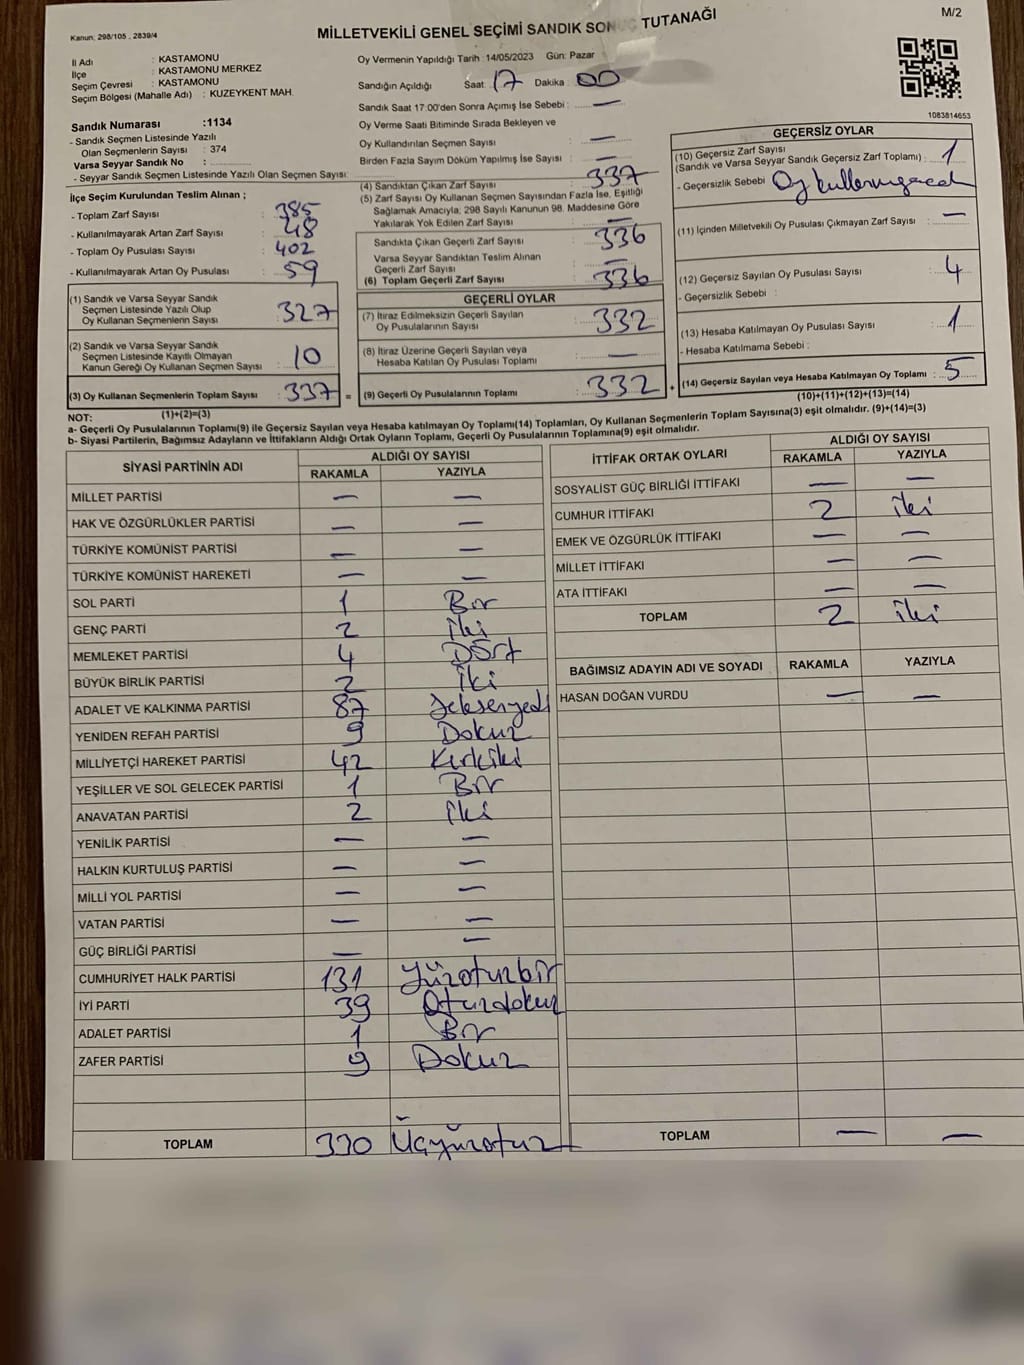 Kanun: 298/105 , 2839/4
MİLLETVEKİLİ GENEL SEÇİMİ SANDIK SONUÇ TUTANAĞI
M/2
İl Adı : KASTAMONU
İlçe : KASTAMONU MERKEZ
Seçim Çevresi : KASTAMONU
Seçim Bölgesi (Mahalle Adı) : KUZEYKENT MAH.
Sandık Numarası :1134
- Sandık Seçmen Listesinde Yazılı
Olan Seçmenlerin Sayısı : 374
Varsa Seyyar Sandık No :
- Seyyar Sandık Seçmen Listesinde Yazılı Olan Seçmen Sayısı:
Oy Vermenin Yapıldığı Tarih :14/05/2023 Gün: Pazar
Sandığın Açıldığı Saat : 17 Dakika : 00
Sandık Saat 17:00'den Sonra Açımış İse Sebebi : —
Oy Verme Saati Bitiminde Sırada Bekleyen ve
Oy Kullandırılan Seçmen Sayısı : —
Birden Fazla Sayım Döküm Yapılmış İse Sayısı : —
1083814653
İlçe Seçim Kurulundan Teslim Alınan ;
- Toplam Zarf Sayısı : 385
- Kullanılmayarak Artan Zarf Sayısı : 48
- Toplam Oy Pusulası Sayısı : 402
- Kullanılmayarak Artan Oy Pusulası : 59
(1) Sandık ve Varsa Seyyar Sandık
Seçmen Listesinde Yazılı Olup
Oy Kullanan Seçmenlerin Sayısı : 327
(2) Sandık ve Varsa Seyyar Sandık
Seçmen Listesinde Kayıtlı Olmayan
Kanun Gereği Oy Kullanan Seçmen Sayısı : 10
(3) Oy Kullanan Seçmenlerin Toplam Sayısı : 337 =
(1)+(2)=(3)
(4) Sandıktan Çıkan Zarf Sayısı : 337
(5) Zarf Sayısı Oy Kullanan Seçmen Sayısından Fazla İse, Eşitliği
Sağlamak Amacıyla; 298 Sayılı Kanunun 98. Maddesine Göre
Yakılarak Yok Edilen Zarf Sayısı : —
Sandıkta Çıkan Geçerli Zarf Sayısı : 336
Varsa Seyyar Sandıktan Teslim Alınan
Geçerli Zarf Sayısı : —
(6) Toplam Geçerli Zarf Sayısı : 336
GEÇERLİ OYLAR
(7) İtiraz Edilmeksizin Geçerli Sayılan
Oy Pusulalarının Sayısı : 332
(8) İtiraz Üzerine Geçerli Sayılan veya
Hesaba Katılan Oy Pusulası Toplamı : —
(9) Geçerli Oy Pusulalarının Toplamı : 332 +
GEÇERSİZ OYLAR
(10) Geçersiz Zarf Sayısı
(Sandık ve Varsa Seyyar Sandık Geçersiz Zarf Toplamı) : 1
- Geçersizlik Sebebi : Oy
(11) İçinden Milletvekili Oy Pusulası Çıkmayan Zarf Sayısı : —
(12) Geçersiz Sayılan Oy Pusulası Sayısı : 4
- Geçersizlik Sebebi :
(13) Hesaba Katılmayan Oy Pusulası Sayısı : 1
- Hesaba Katılmama Sebebi :
(14) Geçersiz Sayılan veya Hesaba Katılmayan Oy Toplamı : 5
(10)+(11)+(12)+(13)=(14)
NOT:
a- Geçerli Oy Pusulalarının Toplamı(9) ile Geçersiz Sayılan veya Hesaba katılmayan Oy Toplamı(14) Toplamları, Oy Kullanan Seçmenlerin Toplam Sayısına(3) eşit olmalıdır. (9)+(14)=(3)
b- Siyasi Partilerin, Bağımsız Adayların ve İttifakların Aldığı Ortak Oyların Toplamı, Geçerli Oy Pusulalarının Toplamına(9) eşit olmalıdır.
SİYASİ PARTİNİN ADI ALDIĞI OY SAYISI
RAKAMLA YAZIYLA
MİLLET PARTİSİ — —
HAK VE ÖZGÜRLÜKLER PARTİSİ — —
TÜRKİYE KOMÜNİST PARTİSİ — —
TÜRKİYE KOMÜNİST HAREKETİ — —
SOL PARTİ 1 Bir
GENÇ PARTİ 2 İki
MEMLEKET PARTİSİ 4 Dört
BÜYÜK BİRLİK PARTİSİ 2 İki
ADALET VE KALKINMA PARTİSİ 87 Seksenyedi
YENİDEN REFAH PARTİSİ 9 Dokuz
MİLLİYETÇİ HAREKET PARTİSİ 42 Kırkiki
YEŞİLLER VE SOL GELECEK PARTİSİ 1 Bir
ANAVATAN PARTİSİ 2 İki
YENİLİK PARTİSİ — —
HALKIN KURTULUŞ PARTİSİ — —
MİLLİ YOL PARTİSİ — —
VATAN PARTİSİ — —
GÜÇ BİRLİĞİ PARTİSİ — —
CUMHURİYET HALK PARTİSİ 131 Yüzotuzbir
İYİ PARTİ 39 Otuzdokuz
ADALET PARTİSİ 1 Bir
ZAFER PARTİSİ 9 Dokuz
TOPLAM 330 Üçyüzotuz
İTTİFAK ORTAK OYLARI ALDIĞI OY SAYISI
RAKAMLA YAZIYLA
SOSYALİST GÜÇ BİRLİĞİ İTTİFAKI — —
CUMHUR İTTİFAKI 2 iki
EMEK VE ÖZGÜRLÜK İTTİFAKI — —
MİLLET İTTİFAKI — —
ATA İTTİFAKI — —
TOPLAM 2 iki
BAĞIMSIZ ADAYIN ADI VE SOYADI RAKAMLA YAZIYLA
HASAN DOĞAN VURDU — —
TOPLAM — —